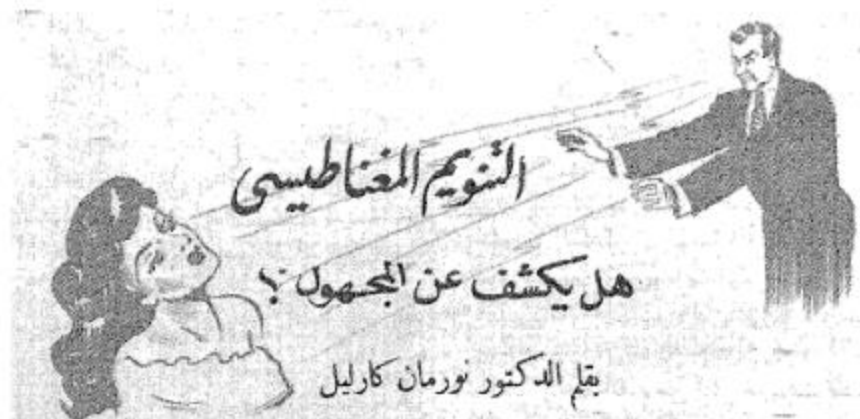 التنويم المغناطيسى
هل يكشف عن المجهول ؟
بقلم الدكتور نورمان كارليل